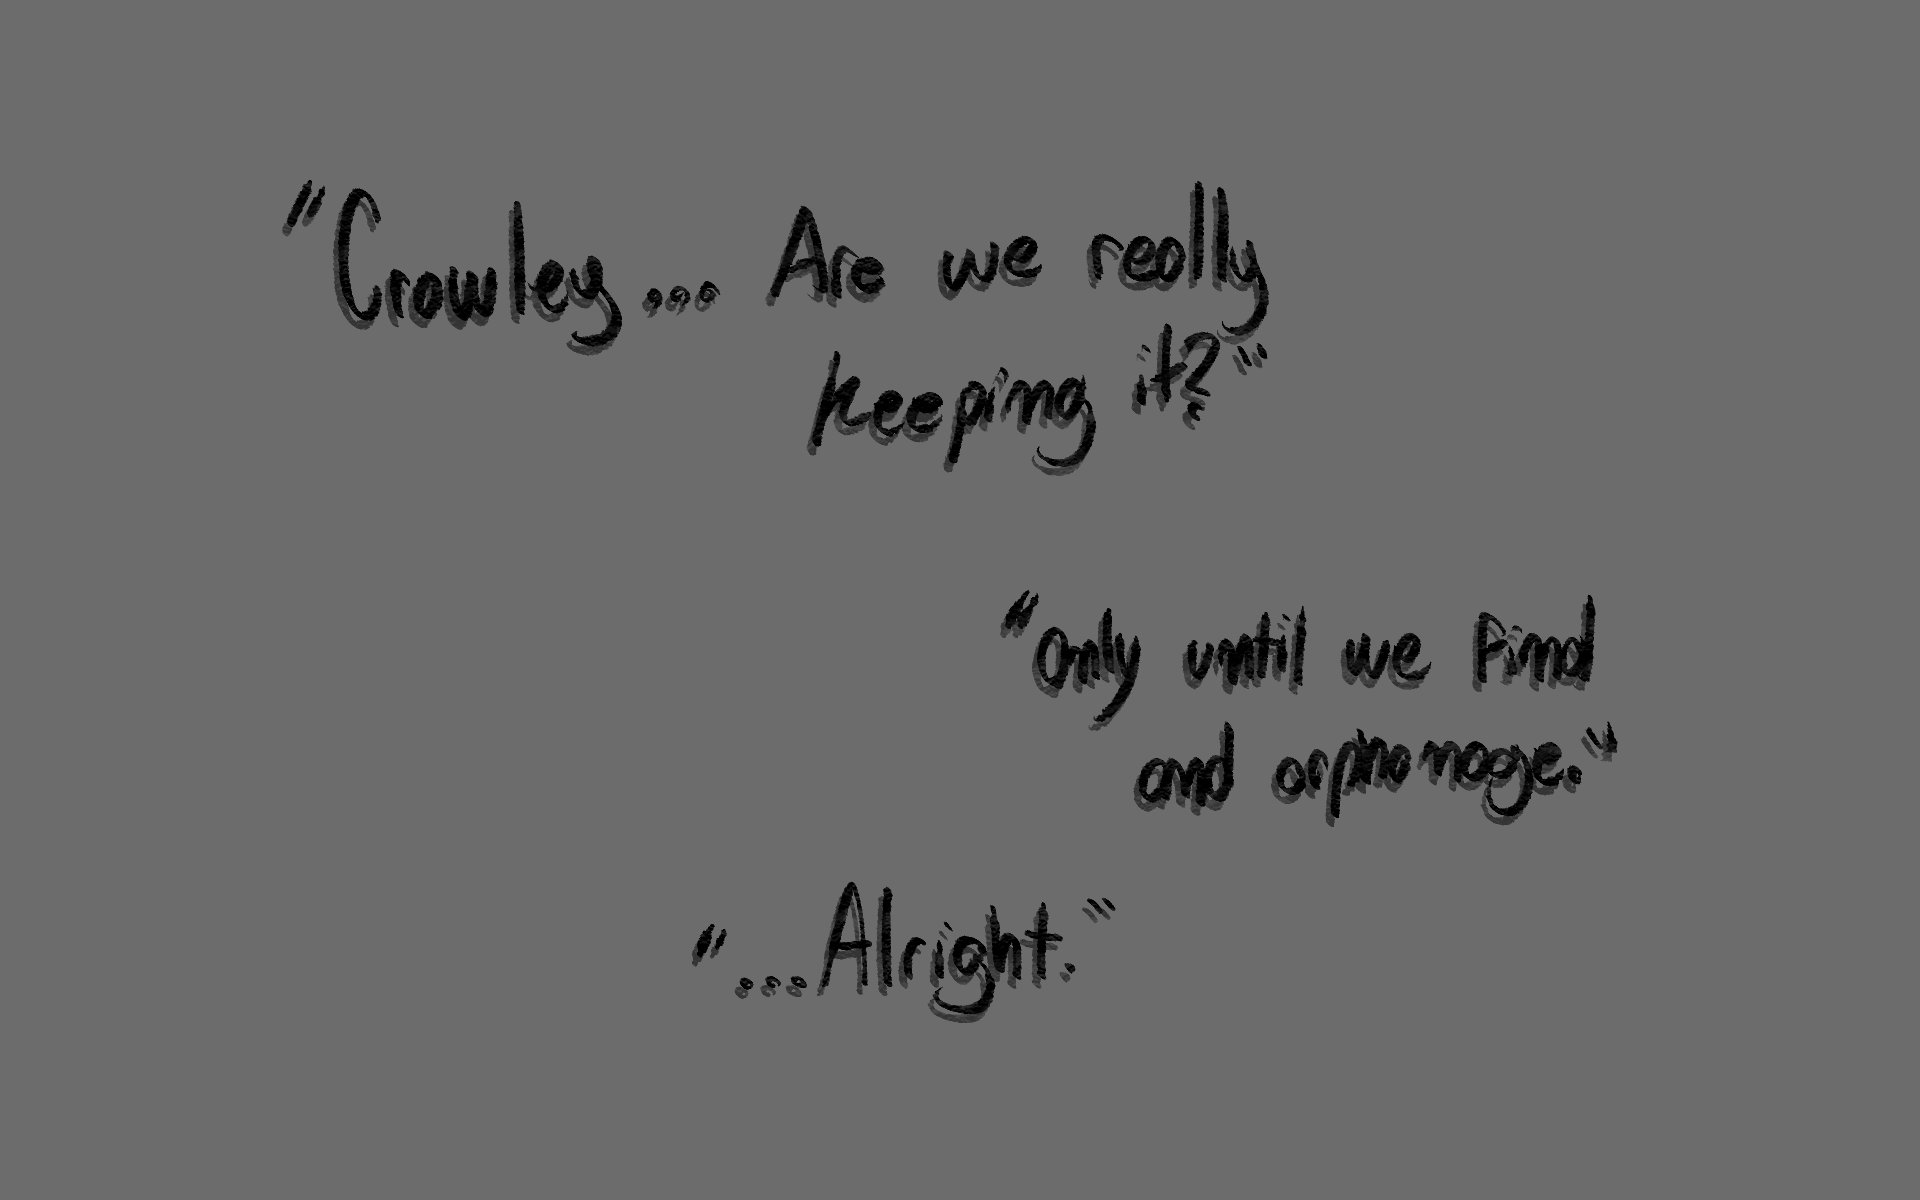 "Crowley... Are we really
keeping it?"
"Only until we find
and orphanage."
"...Alright."